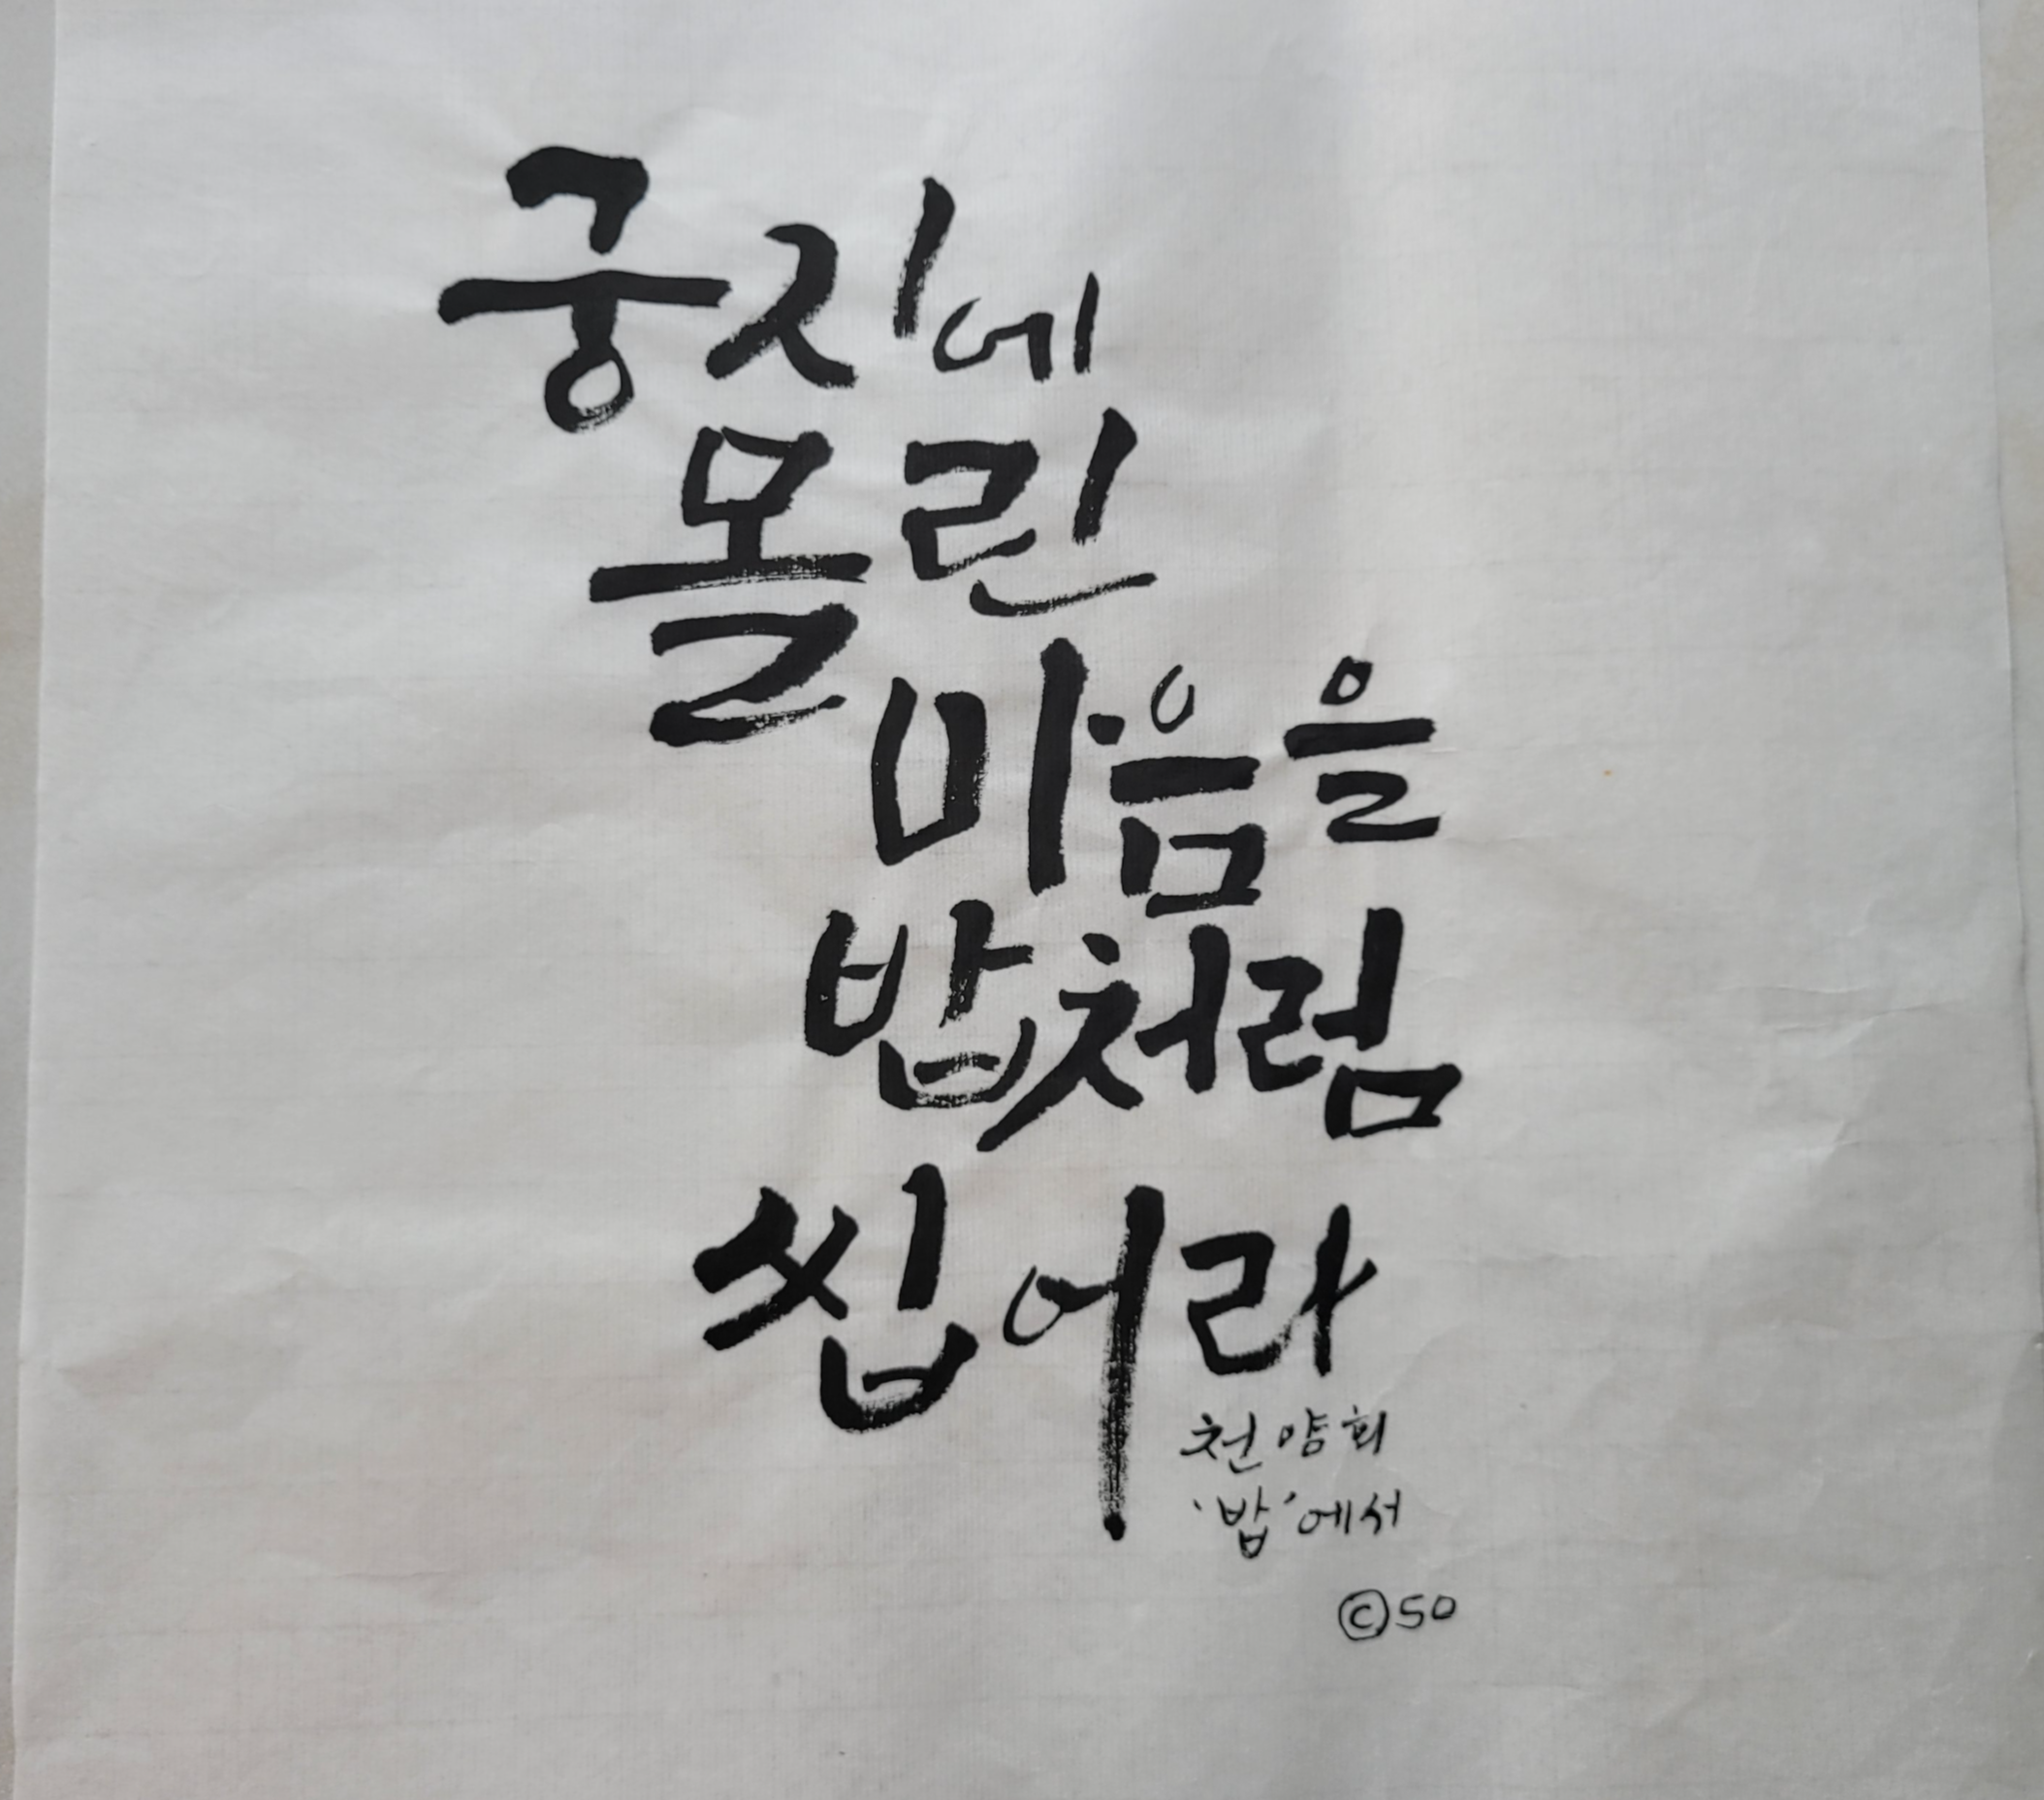 궁지에
몰린
마음을
밥처럼
씹어라
천양희
'밥'에서
©50